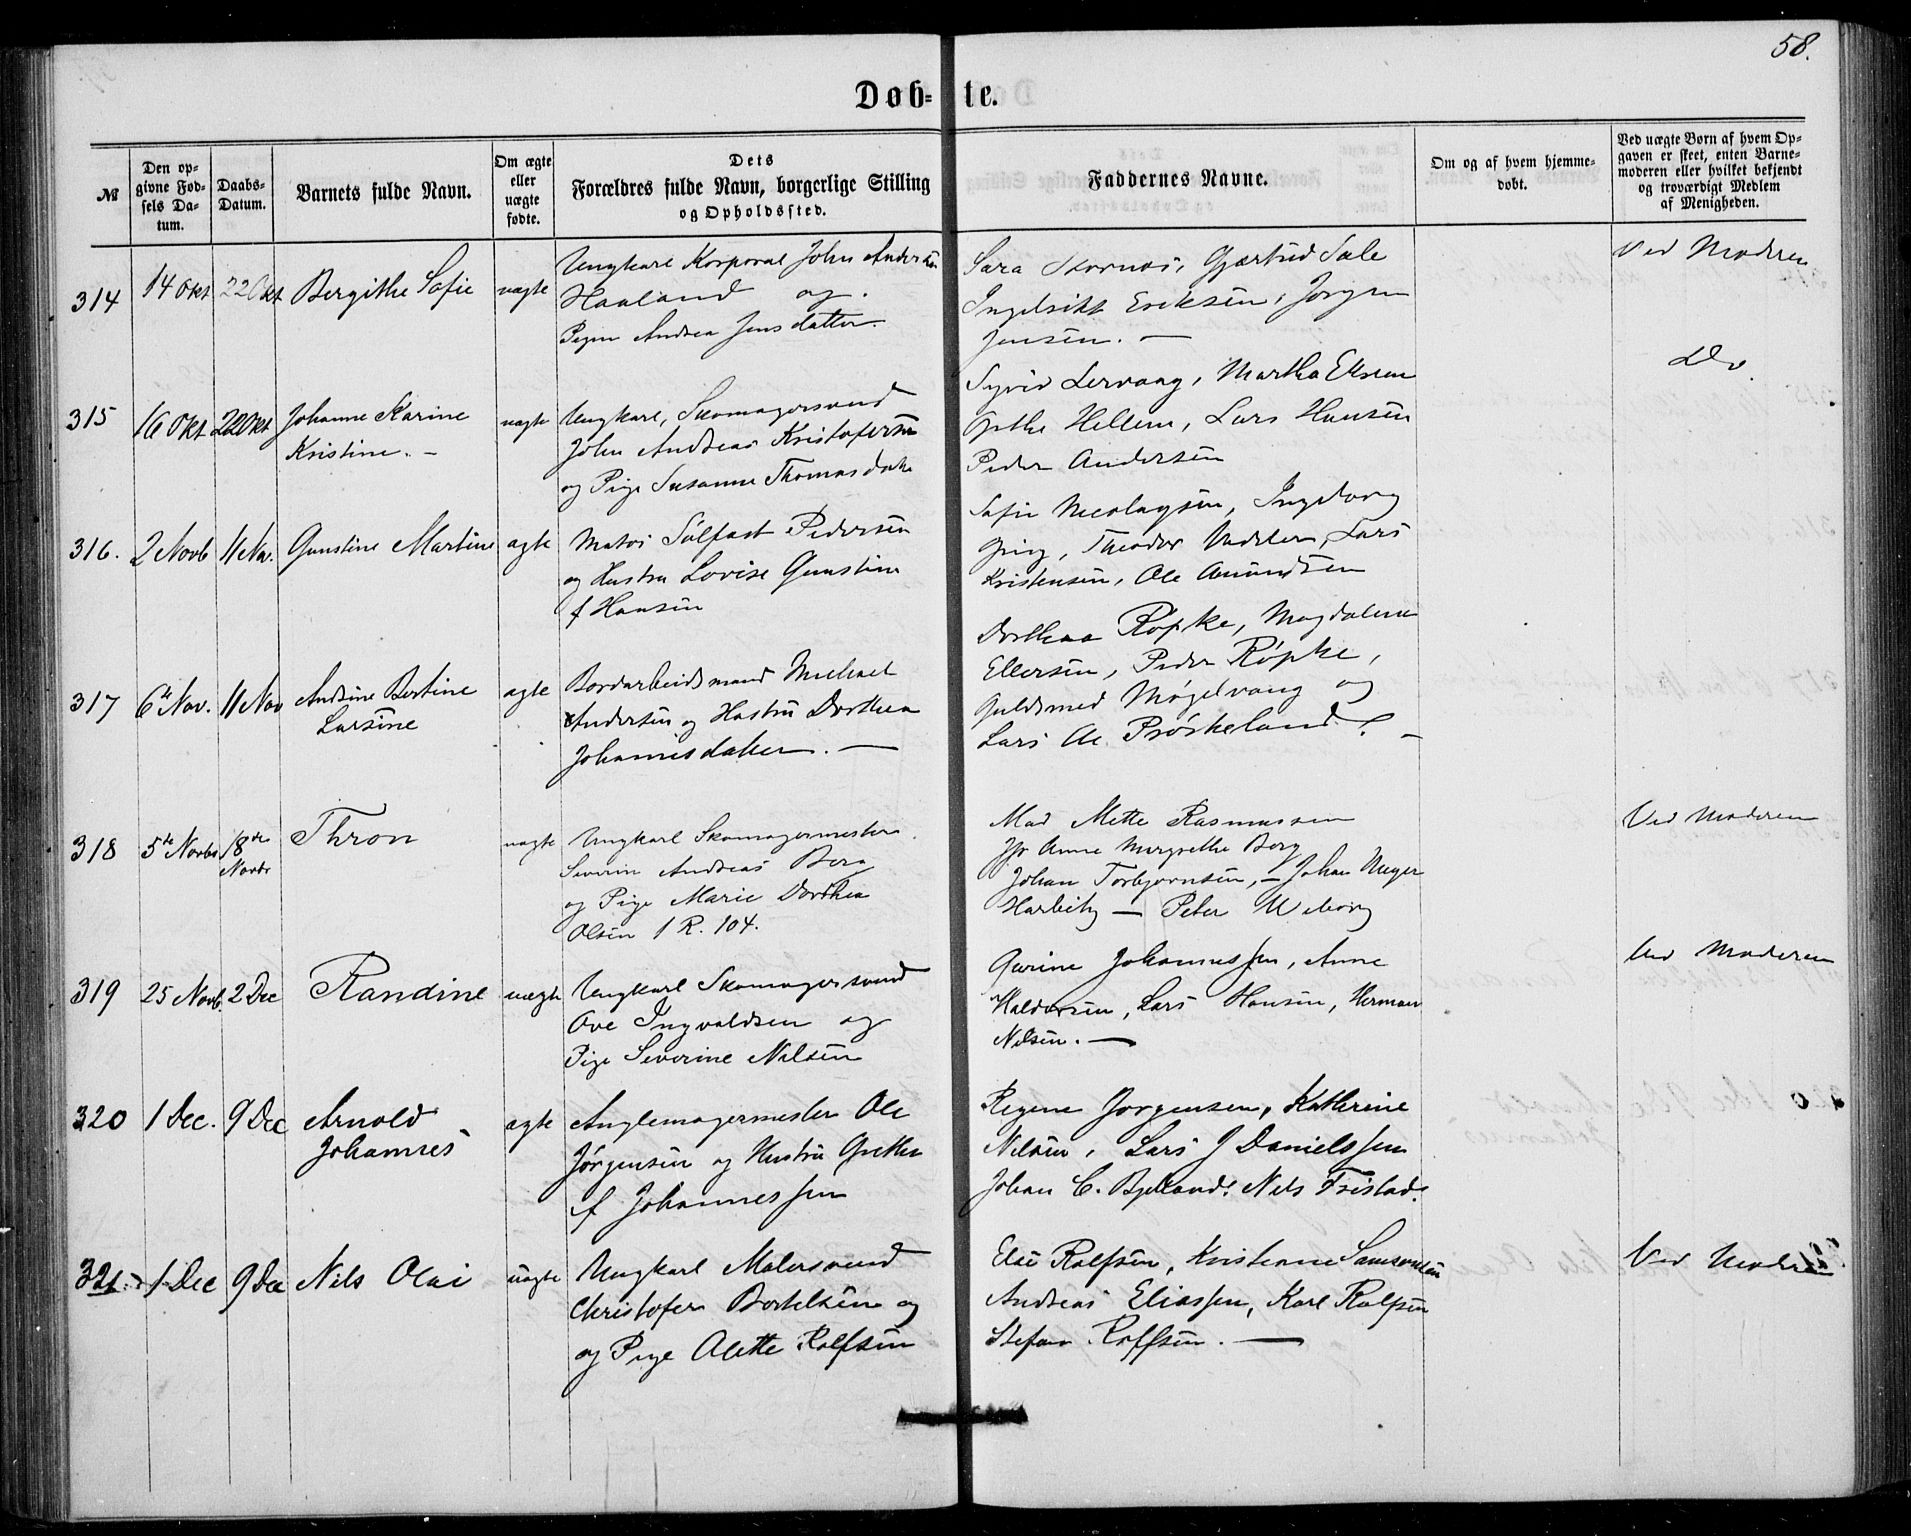 58.
Døb- te.
№
Den opgivne Fødsels Datum.
Daabs-Datum.
Barnets fulde Navn.
Om ægte eller uægte fødte.
Dets Forældres fulde Navn, borgerlige Stilling og Opholdssted.
Faddernes Navne.
Om og af hvem hjemmedøbt.
Ved uægte Børn af hvem Opgaven er skeet, enten Barnemoderen eller hvilket bekjendt og troværdigt Medlem af Menigheden.
314
14 Okt
22 Okt
Bergithe Sofie
uægte
Ungkarl Korporal John Andersen
Haaland og
Pigen Andrea Jensdatter.
Sara Gjærtrud Sale
Eriksen, Jørgen
Jensen. —
Ved Moderen
315
16 Okt
22 Okt
Johanne Karine
Kristine. –
uægte
Ungkarl, Skomagersvend
John Andreas Kristofersen
og Pige Susanne Thomasdatter
Lervaag, Martha Elsen
Hellem, Lars Hansen
Peder Andersen
Do
316.
2 Novb
11 Nov.
Gunstine Martine
ægte
Matros Pedersen
og Hustru Lovise Gunstine
f Hansen
Sofie Nicolaysen, Ingeborg
Theodor Lars
Kristensen, Ole Amundsen
317
6te Nov.
11 Nov
Andrine Bertine
Larsine
ægte
Bordarbeidsmand Michael
Andersen og Hustru Dorthea
Johannesdatter. —
Dorthea Røpke, Magdalene
Ellersen, Peder Røpke,
Guldsmed Møgelvang og
Lars
318
5te Novbr
18de
Novbr
Thron
uægte
Ungkarl Skomagermester
Severin Andreas Berg
og Pige Marie Dorthea
Olsen 1 R. 104.
Mad Mette Rasmussen
Jfr Anne Margrethe Berg
Johan Torbjørnsen, – Johan Meyer
Harbitz — Peter Wiborg
Ved Moderen
319
25 Novb.
2 Dec
Randine
uægte
Ungkarl Skomagersvend
Ove Ingvaldsen og
Pige Severine Nilsen
Gurine Johannessen, Anne
Haldorsen, Lars Hansen, Herman
Nilsen. —
Ved Moderen
320
1 Dec.
9 Dec
Arnold
Johannes
ægte
Anglemagermester Ole
Jørgensen og Hustru Grethe
f Johannessen
Regene Jørgensen, Kathrine
Nilsen, Lars J Danielssen
Johan C. Bjelland, Nils Tristad.
321
1 Dec
9 Dec
Nils Olai
uægte
Ungkarl Malersvend
Christofer Bertelsen og
og Pige Alette Rolfsen
Else Rolfsen, Kristianne Samsonsen
Andreas Eliassen, Karl Rolfsen
Stefan Rolfsen. —
Ved Moderen